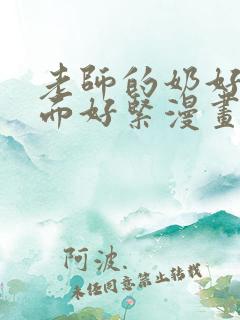 老師的奶好
而好緊漫畫
阿波.
未經同意禁止轉載